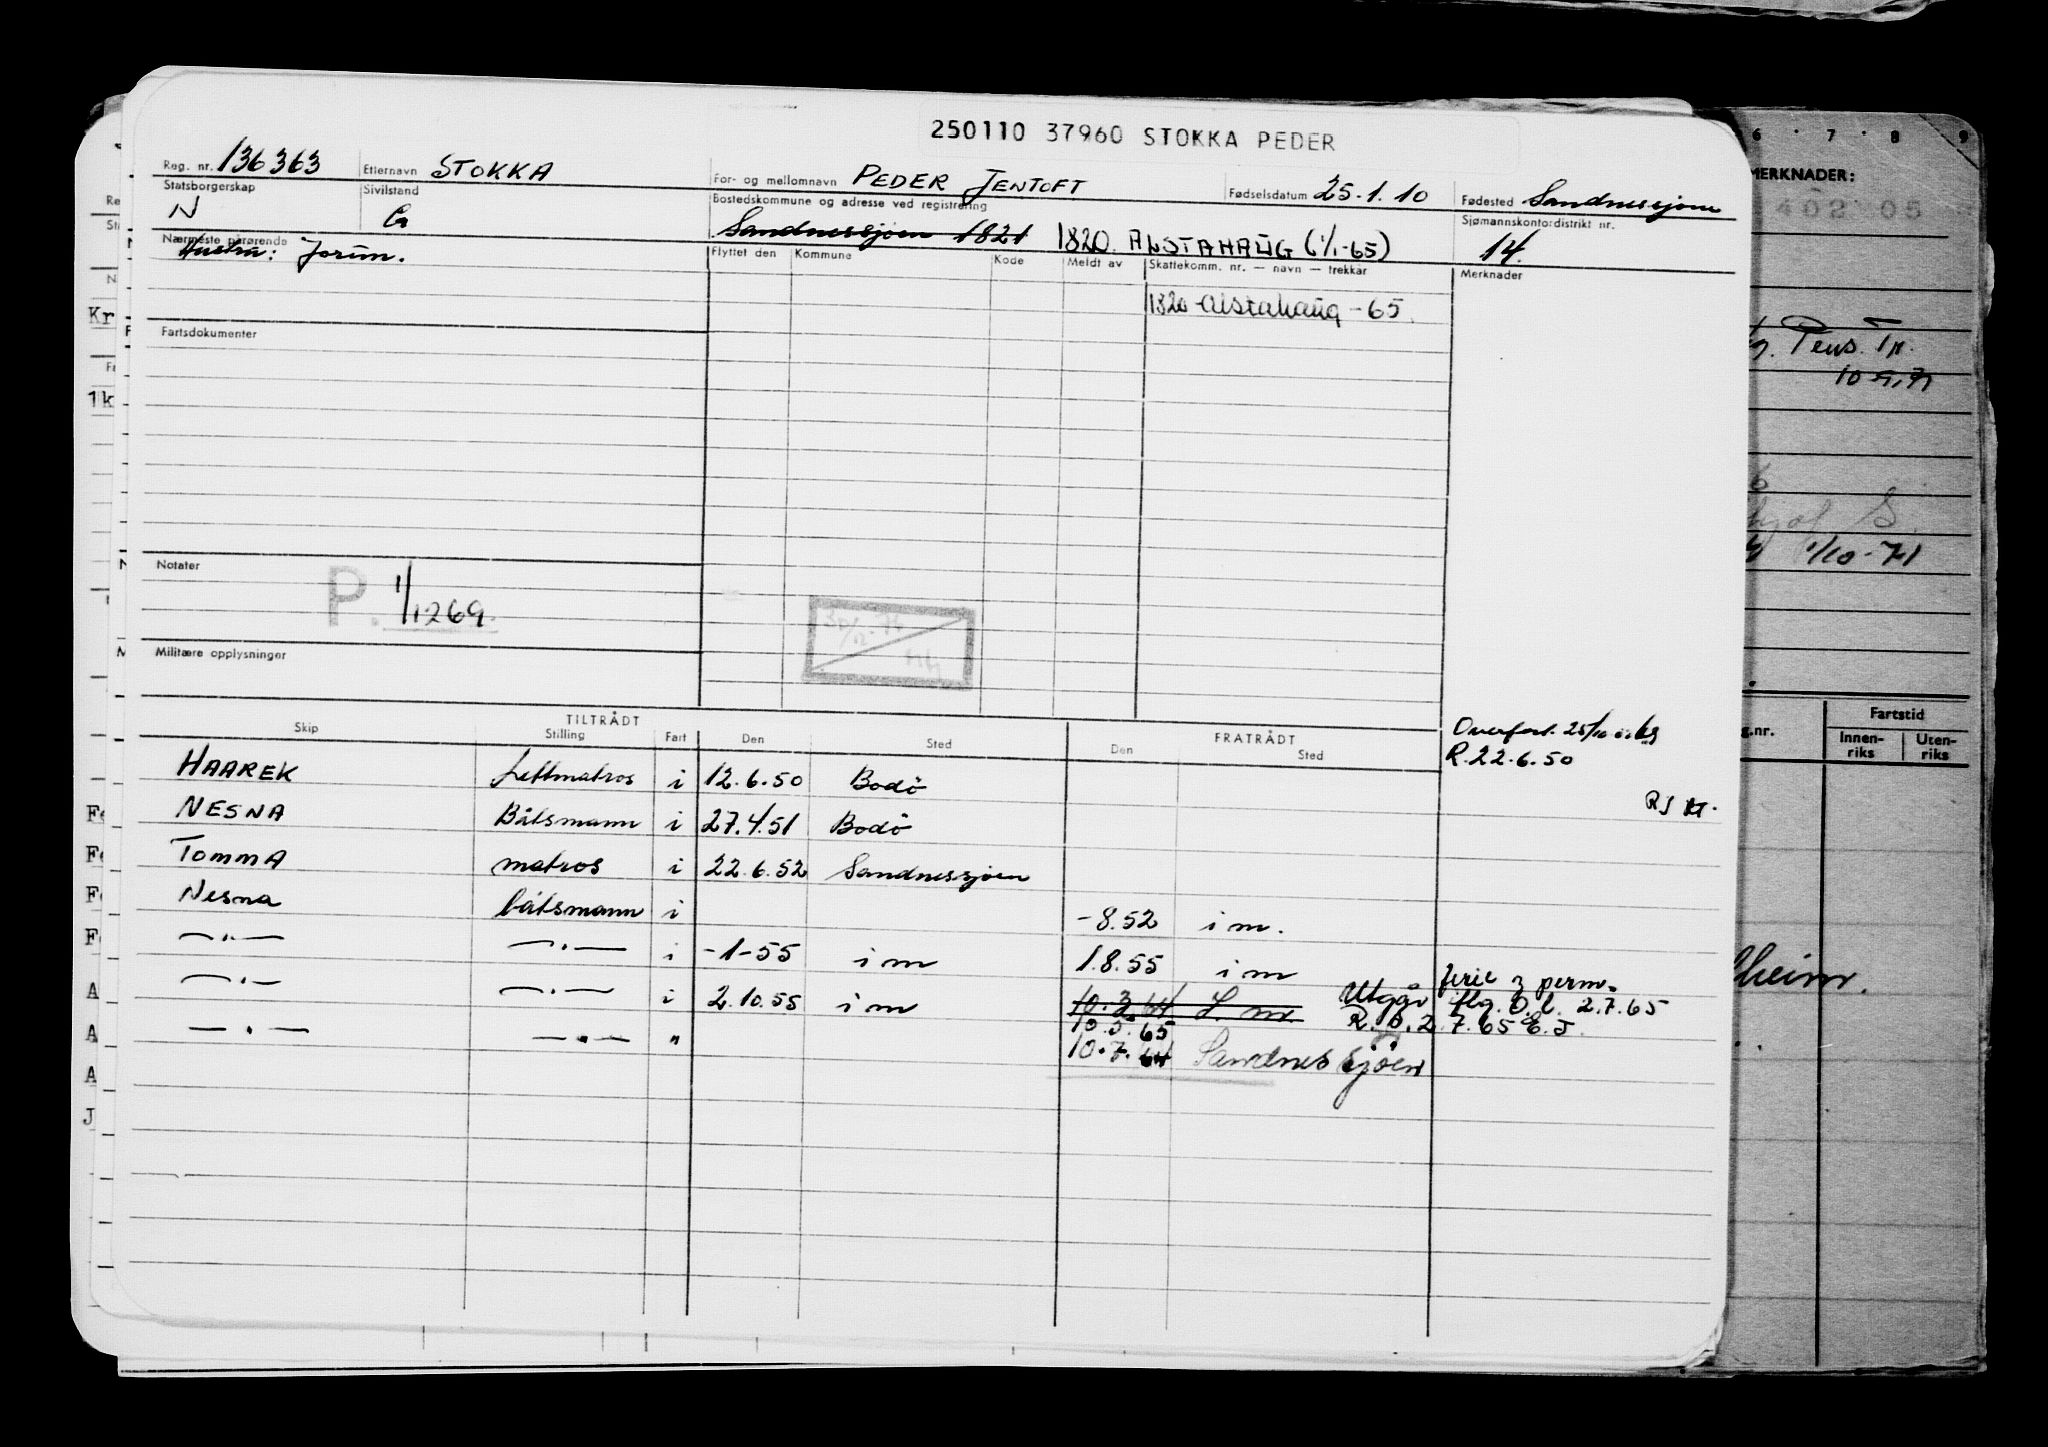 250110 37960 STOKKA PEDER
Reg. nr. 136363 Etternavn STOKKA For- og mellomnavn PEDER JENTOFT Fødselsdatum 25.1.10 Fødested Sandnessjøen
Statsborgerskap N Sivilstand G Bostedskommune og adresse ved registrering Sandnessjøen 1821 1820. ALSTAHAUG (1/1-65) Sjømannskontordistrikt nr. 14.
Nærmeste pårørende Flyttet den Kommune Kode Meldt av Skattekomm. nr. — navn — trekkar Merknader
Hustru: Jorun.
1820 Alstahaug - 65.
Fartsdokumenter
Notater
P. 1/1269
30/12-74
Militære opplysninger
TILTRÅDT FRATRÅDT
Skip Stilling Fart Den Sted Den Sted
Overført. 25/10
R. 22.6.50
HAAREK Lettmatros i 12.6.50 Bodö
NESNA Båtsmann i 27.4.51 Bodö
TOMMA matros i 22.6.52 Sandnessjøen
Nesna båtsmann i -8.52 i m.
—"— —"— i -1-55 i m 1.8.55 i m
—"— —"— i 2.10.55 i m 10.3.64 L. m. Utgår ferie 3 perm.
flg. O.l. 2.7.65
10.3.65 R. O. 2.7.65 E.J.
—"— —"— " 10.7.64 Sandnessjöen
6 7 8 9
MERKNADER:
402 05
Pens. Tr.
1/10-71
g.nr. Fartstid
Innen-
riks Uten-
riks
heim.
Kr
1k
A
A
A
J